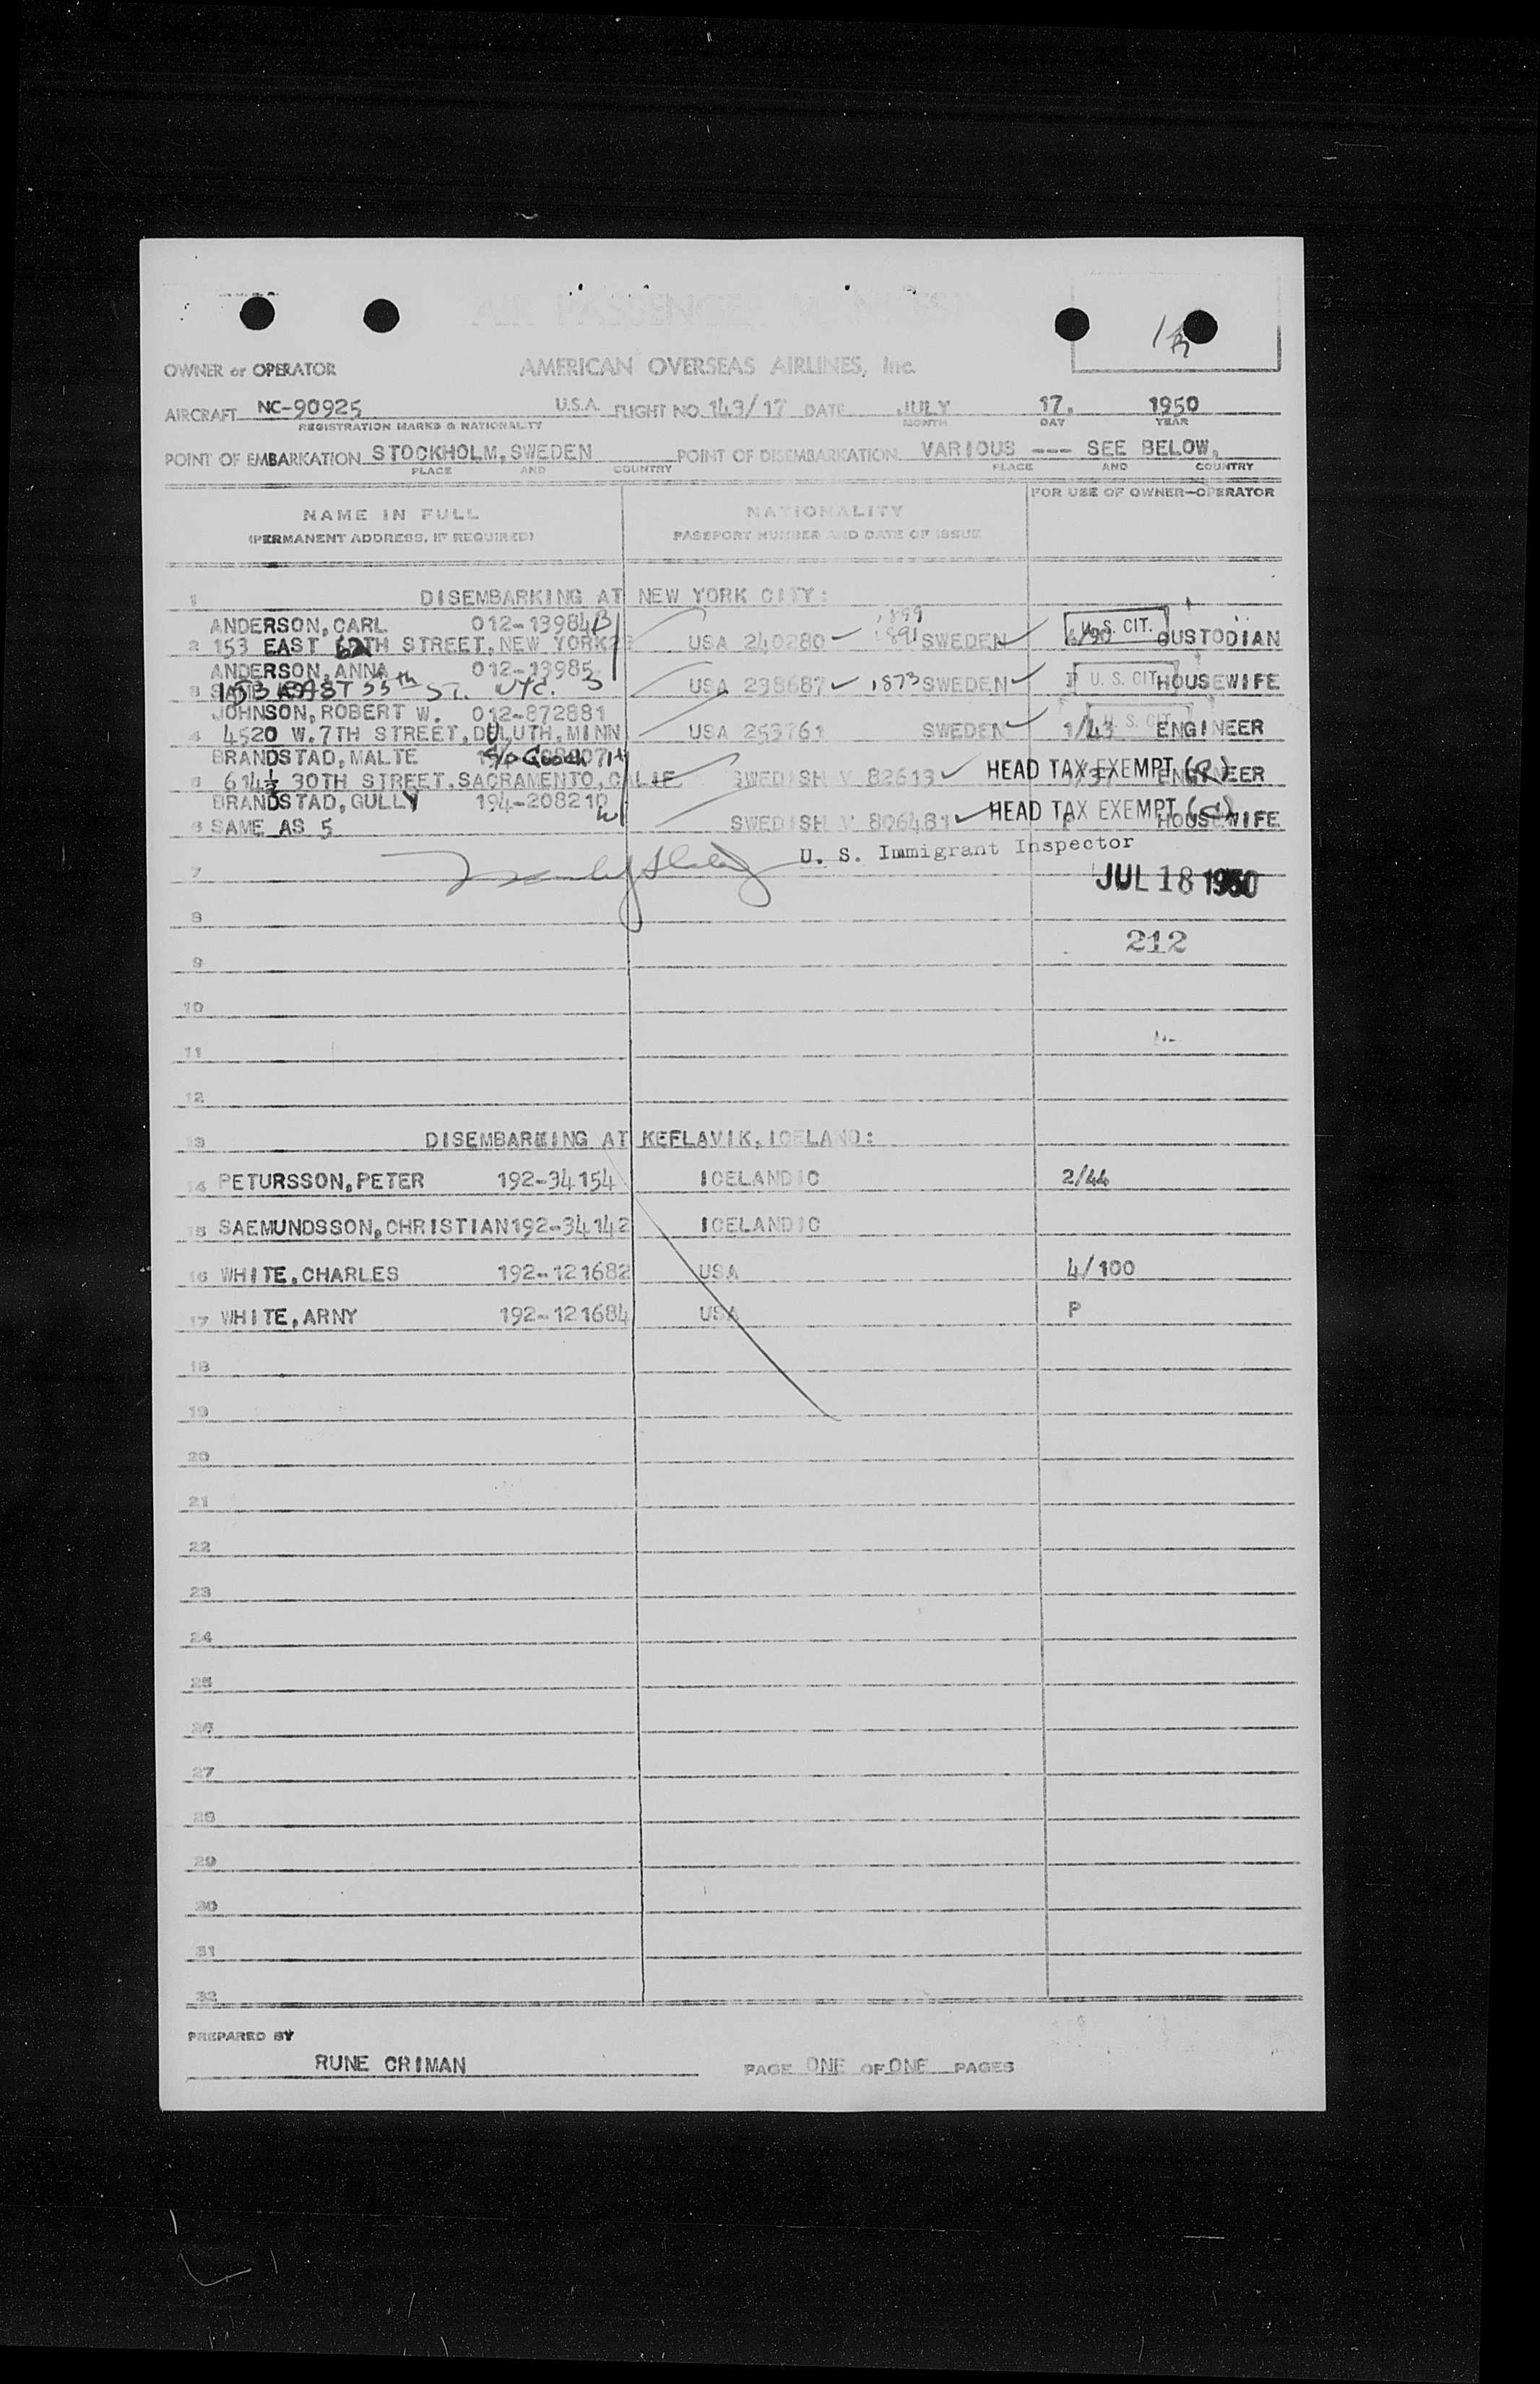 AIR PASSENGER MANIFEST
OWNER or OPERATOR AMERICAN OVERSEAS AIRLINES, Inc.
AIRCRAFT NC-90925 U.S.A. FLIGHT NO. 143/17 DATE JULY 17, 1950
REGISTRATION MARKS & NATIONALITY MONTH DAY YEAR
POINT OF EMBARKATION STOCKHOLM, SWEDEN POINT OF DISEMBARKATION VARIOUS --- SEE BELOW,
PLACE AND COUNTRY PLACE AND COUNTRY
FOR USE OF OWNER-OPERATOR
NAME IN FULL NATIONALITY
(PERMANENT ADDRESS, IF REQUIRED) PASSPORT NUMBER AND DATE OF ISSUE
1 DISEMBARKING AT NEW YORK CITY:
ANDERSON, CARL 012-13984 B 1899
2 153 EAST TH STREET, NEW YORK USA 240280 1891 SWEDEN U. S. CIT. CUSTODIAN
ANDERSON, ANNA 012-13985
3 153 EAST 55th ST. NYC. USA 238687 1873 SWEDEN U. S. CIT. HOUSEWIFE
JOHNSON, ROBERT W. 012-872881
4 4520 W. 7TH STREET, DULUTH, MINN USA 253761 SWEDEN U. S. CIT. 1/43 ENGINEER
BRANDSTAD, MALTE
5 614½ 30TH STREET, SACRAMENTO, CALIF. SWEDISH V 82613 HEAD TAX EXEMPT ENGINEER
BRANDSTAD, GULLY 194-208210
6 SAME AS 5 SWEDISH V 806481 HEAD TAX EXEMPT HOUSEWIFE
U. S. Immigrant Inspector
7 JUL 18 1950
8
212
9
10
11
12
13 DISEMBARKING AT KEFLAVIK, ICELAND:
14 PETURSSON, PETER 192-34154 ICELANDIC 2/44
15 SAEMUNDSSON, CHRISTIAN 192-34142 ICELANDIC
16 WHITE, CHARLES 192-121682 USA 4/100
17 WHITE, ARNY 192-121684 USA P
18
19
20
21
22
23
24
25
26
27
28
29
30
31
32
PREPARED BY
RUNE CRIMAN PAGE ONE OF ONE PAGES